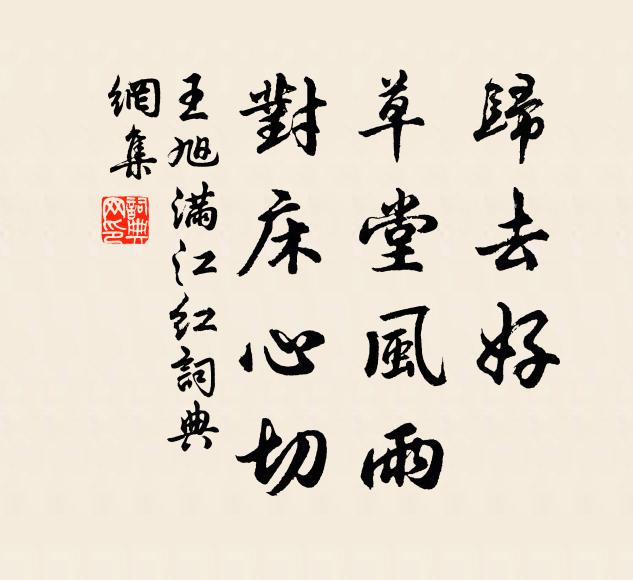 歸去好
草堂風雨
對床心切
王旭滿江紅詞典
網集
詞典
网印